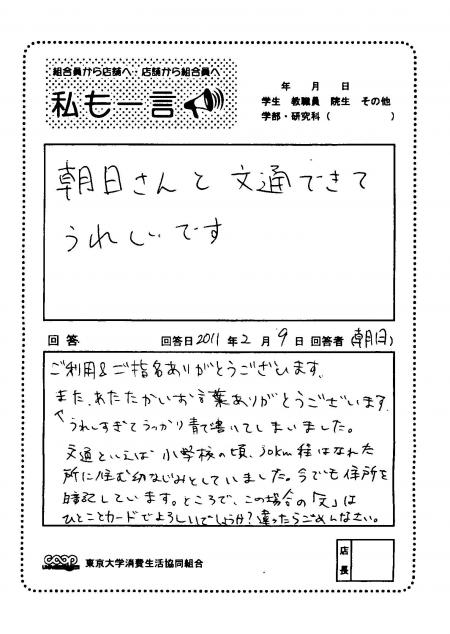 組合員から店舗へ・店舗から組合員へ
私も一言
年 月 日
学生 教職員 院生 その他
学部・研究科( )
朝日さんと文通できて
うれしいです
回答 回答日 2011 年 2 月 9 日 回答者(朝日)
ご利用&ご指名ありがとうございます。
また、あたたかいお言葉ありがとうございます。
うれしすぎてうっかり青で書いてしまいました。
文通といえば小学校の頃、30km程はなれた
所に住む幼なじみとしていました。今でも住所を
暗記しています。ところで、この場合の「文」は
ひとことカードでよろしいでしょうか?違ったらごめんなさい。
coop 東京大学消費生活協同組合
店長